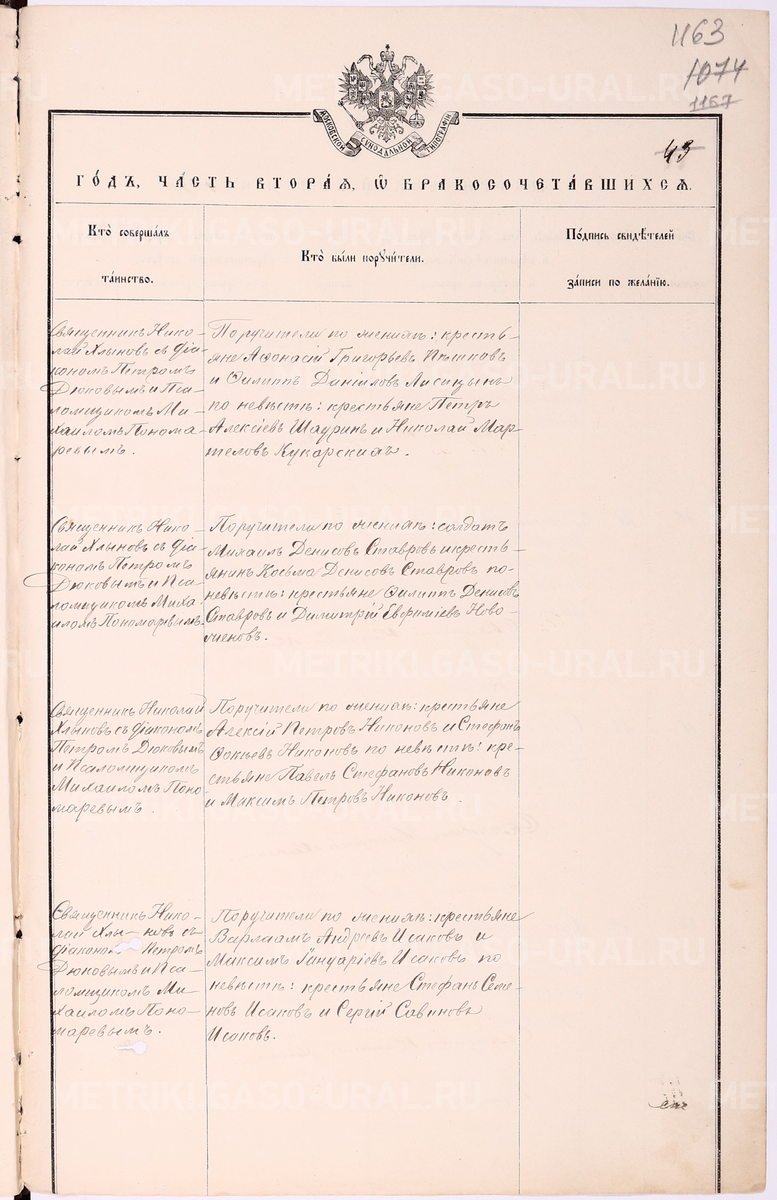 1163
1074
1157
МОСКОВСКОЙ СѴНОДАЛЬНОЙ ТИПОГРАФІИ
43
ГО́ДЪ, ЧА́СТЬ ВТОРА́Я, Ѽ БРАКОСОЧЕТА́ВШИХСЯ.
Кто̀ соверша́лъ
та́инство.
Кто̀ бы́ли порꙋчи́тели.
По́дпись свидѣ́телей
за́писи по жела́нїю.
Священникъ Нико-
лай Хлыновъ съ діа-
кономъ Петромъ
Дюковымъ и Пса-
ломщикомъ Ми-
хаиломъ Понома-
ревымъ.
Поручители по женихѣ: кресть-
яне Аѳонасій Григорьевъ Пѣшковъ
и Филиппъ Даніиловъ Лисицынъ
по невѣстѣ: крестьяне Петръ
Алексіевъ Шауринъ и Николай Мар-
теловъ Кукарскихъ.
Священникъ Нико-
лай Хлыновъ съ діа-
кономъ Петромъ
Дюковымъ и Пса-
ломщикомъ Миха-
иломъ Пономаревымъ.
Поручители по женихѣ: солдатъ
Михаилъ Денисовъ Ставровъ и кресть-
янинъ Косьма Денисовъ Ставровъ по
невѣстѣ: крестьяне Филиппъ Денисовъ
Ставровъ и Димитрій Евфиміевъ Ново-
женовъ.
Священникъ Николай
Хлыновъ съ діакономъ
Петромъ Дюковымъ
и Псаломщикомъ
Михаиломъ Поно-
маревымъ.
Поручители по женихѣ: крестьяне
Алексій Петровъ Никоновъ и Стефанъ
Фокѣевъ Никоновъ по невѣстѣ: кре-
стьяне Павелъ Стефановъ Никоновъ
и Максимъ Петровъ Никоновъ.
Священникъ Нико-
лай Хлы-новъ съ
діакономъ Петромъ
Дюковымъ и Пса-
ломщикомъ Ми-
хаиломъ Поно-
маревымъ.
Поручители по женихѣ: крестьяне
Варлаамъ Андреевъ Исаковъ и
Максимъ Іануаріевъ Исаковъ по
невѣстѣ: крестьяне Стефанъ Семе-
новъ Исаковъ и Сергій Савиновъ
Исаковъ.
METRIKI.GASO-URAL.RU